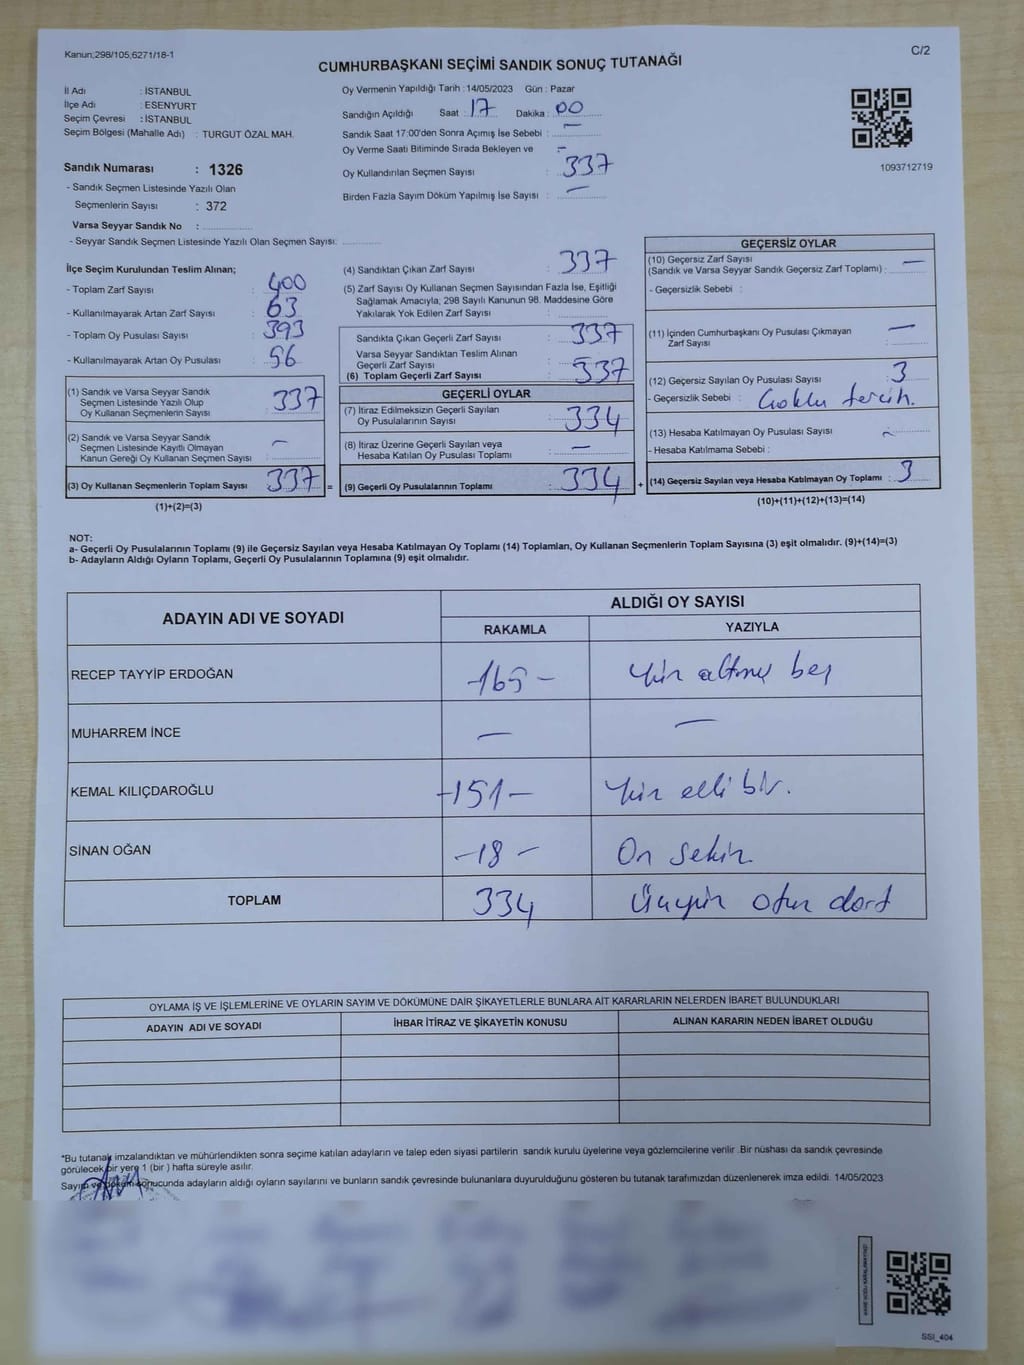 Kanun;298/105;6271/18-1
C/2
CUMHURBAŞKANI SEÇİMİ SANDIK SONUÇ TUTANAĞI
İl Adı : İSTANBUL
İlçe Adı : ESENYURT
Seçim Çevresi : İSTANBUL
Seçim Bölgesi (Mahalle Adı) : TURGUT ÖZAL MAH.
Sandık Numarası : 1326
- Sandık Seçmen Listesinde Yazılı Olan
Seçmenlerin Sayısı : 372
Varsa Seyyar Sandık No :
- Seyyar Sandık Seçmen Listesinde Yazılı Olan Seçmen Sayısı:
Oy Vermenin Yapıldığı Tarih : 14/05/2023 Gün : Pazar
Sandığın Açıldığı Saat : 17 Dakika : 00
Sandık Saat 17:00'den Sonra Açımış İse Sebebi : —
Oy Verme Saati Bitiminde Sırada Bekleyen ve : —
Oy Kullandırılan Seçmen Sayısı : 337
Birden Fazla Sayım Döküm Yapılmış İse Sayısı : —
1093712719
İlçe Seçim Kurulundan Teslim Alınan;
- Toplam Zarf Sayısı : 400
- Kullanılmayarak Artan Zarf Sayısı : 63
- Toplam Oy Pusulası Sayısı : 393
- Kullanılmayarak Artan Oy Pusulası : 56
(1) Sandık ve Varsa Seyyar Sandık
Seçmen Listesinde Yazılı Olup
Oy Kullanan Seçmenlerin Sayısı : 337
(2) Sandık ve Varsa Seyyar Sandık
Seçmen Listesinde Kayıtlı Olmayan
Kanun Gereği Oy Kullanan Seçmen Sayısı : —
(3) Oy Kullanan Seçmenlerin Toplam Sayısı : 337 =
(1)+(2)=(3)
(4) Sandıktan Çıkan Zarf Sayısı : 337
(5) Zarf Sayısı Oy Kullanan Seçmen Sayısından Fazla İse, Eşitliği
Sağlamak Amacıyla, 298 Sayılı Kanunun 98. Maddesine Göre
Yakılarak Yok Edilen Zarf Sayısı :
Sandıkta Çıkan Geçerli Zarf Sayısı : 337
Varsa Seyyar Sandıktan Teslim Alınan
Geçerli Zarf Sayısı :
(6) Toplam Geçerli Zarf Sayısı : 337
GEÇERLİ OYLAR
(7) İtiraz Edilmeksizin Geçerli Sayılan
Oy Pusulalarının Sayısı : 334
(8) İtiraz Üzerine Geçerli Sayılan veya
Hesaba Katılan Oy Pusulası Toplamı : —
(9) Geçerli Oy Pusulalarının Toplamı : 334 +
GEÇERSİZ OYLAR
(10) Geçersiz Zarf Sayısı
(Sandık ve Varsa Seyyar Sandık Geçersiz Zarf Toplamı) : —
- Geçersizlik Sebebi :
(11) İçinden Cumhurbaşkanı Oy Pusulası Çıkmayan
Zarf Sayısı : —
(12) Geçersiz Sayılan Oy Pusulası Sayısı : 3
- Geçersizlik Sebebi : Çoklu tercih.
(13) Hesaba Katılmayan Oy Pusulası Sayısı : ~
- Hesaba Katılmama Sebebi :
(14) Geçersiz Sayılan veya Hesaba Katılmayan Oy Toplamı : 3
(10)+(11)+(12)+(13)=(14)
NOT:
a- Geçerli Oy Pusulalarının Toplamı (9) ile Geçersiz Sayılan veya Hesaba Katılmayan Oy Toplamı (14) Toplamları, Oy Kullanan Seçmenlerin Toplam Sayısına (3) eşit olmalıdır. (9)+(14)=(3)
b- Adayların Aldığı Oyların Toplamı, Geçerli Oy Pusulalarının Toplamına (9) eşit olmalıdır.
ADAYIN ADI VE SOYADI
ALDIĞI OY SAYISI
RAKAMLA YAZIYLA
RECEP TAYYİP ERDOĞAN -165- Yüz altmış beş
MUHARREM İNCE — —
KEMAL KILIÇDAROĞLU -151- Yüz elli bir.
SİNAN OĞAN -18- On sekiz.
TOPLAM 334 Üçyüz otuz dört
OYLAMA İŞ VE İŞLEMLERİNE VE OYLARIN SAYIM VE DÖKÜMÜNE DAİR ŞİKAYETLERLE BUNLARA AİT KARARLARIN NELERDEN İBARET BULUNDUKLARI
ADAYIN ADI VE SOYADI İHBAR İTİRAZ VE ŞİKAYETİN KONUSU ALINAN KARARIN NEDEN İBARET OLDUĞU
*Bu tutanak imzalandıktan ve mühürlendikten sonra seçime katılan adayların ve talep eden siyasi partilerin sandık kurulu üyelerine veya gözlemcilerine verilir .Bir nüshası da sandık çevresinde
görülecek bir yere 1 (bir ) hafta süreyle asılır.
Sayım ve döküm sonucunda adayların aldığı oyların sayılarını ve bunların sandık çevresinde bulunanlara duyurulduğunu gösteren bu tutanak tarafımızdan düzenlenerek imza edildi. 14/05/2023
SSI_404